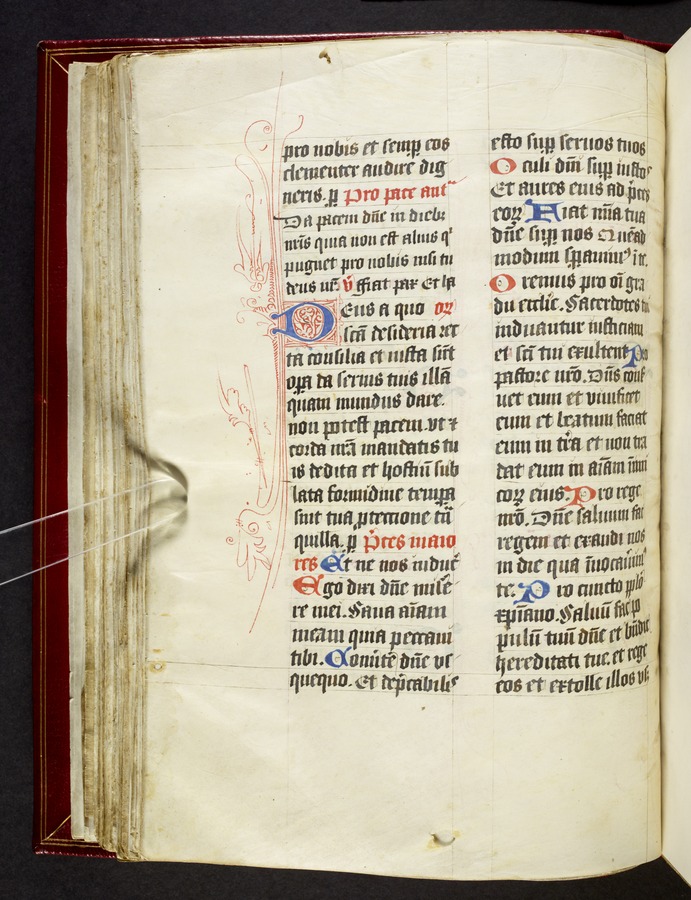 pro nobis et semꝑ eos
clementer audire dig
neris. ꝑ Pro pace anta
Da pacem dñe in diebꝫ
nr̃is quia non est alius q'
pugnet pro nobis nisi tu
deus nr̃ ℣ ffiat pax Et ha
Deus a quo or̃
sc̃a desideria rec
ta consilia et iusta sũt
oꝑa da seruis tuis illã
quam mundus dare.
non potest pacem. vt ⁊
corda nr̃a mandatis tu
is dedita et hostiũ sub
lata formidine tempa
sint tua ꝓtectione trã
quilla. ꝑ P̃ces maio
res Et ne nos inducᷓ
Ego dixi dñe mise
re mei. Sana aĩam
meam quia peccaui
tibi. Conũte dñe vs
quequo. Et dep̃cabilis
esto suꝑ seruos tuos
Oculi dñi suꝑ iustos
Et aures eius ad p̃ces
eoꝝ Fiat mĩa tua
dñe suꝑ nos Quẽad
modum sꝑauim' ĩ te.
Oremus pro oĩ gra
du eccl̃ie. Sacerdotes tui
induantur iusticiam
et sc̃i tui exultent Pro
pastore nr̃o. Dñs cons
uet eum et viuificet
eum et beatum faciat
eum in tr̃a et non tra
dat eum in aĩam inimi
coꝝ eius. Pro rege
nr̃o. Dñe saluum fac
regem et exaudi nos
in die qua ĩuocauim'
te. Pro cuncto pp̃lo
xp̃iano. Saluũ fac po
pulũ tuũ dñe et bñdic
hereditati tue. et rege
eos et extolle illos vsꝫ